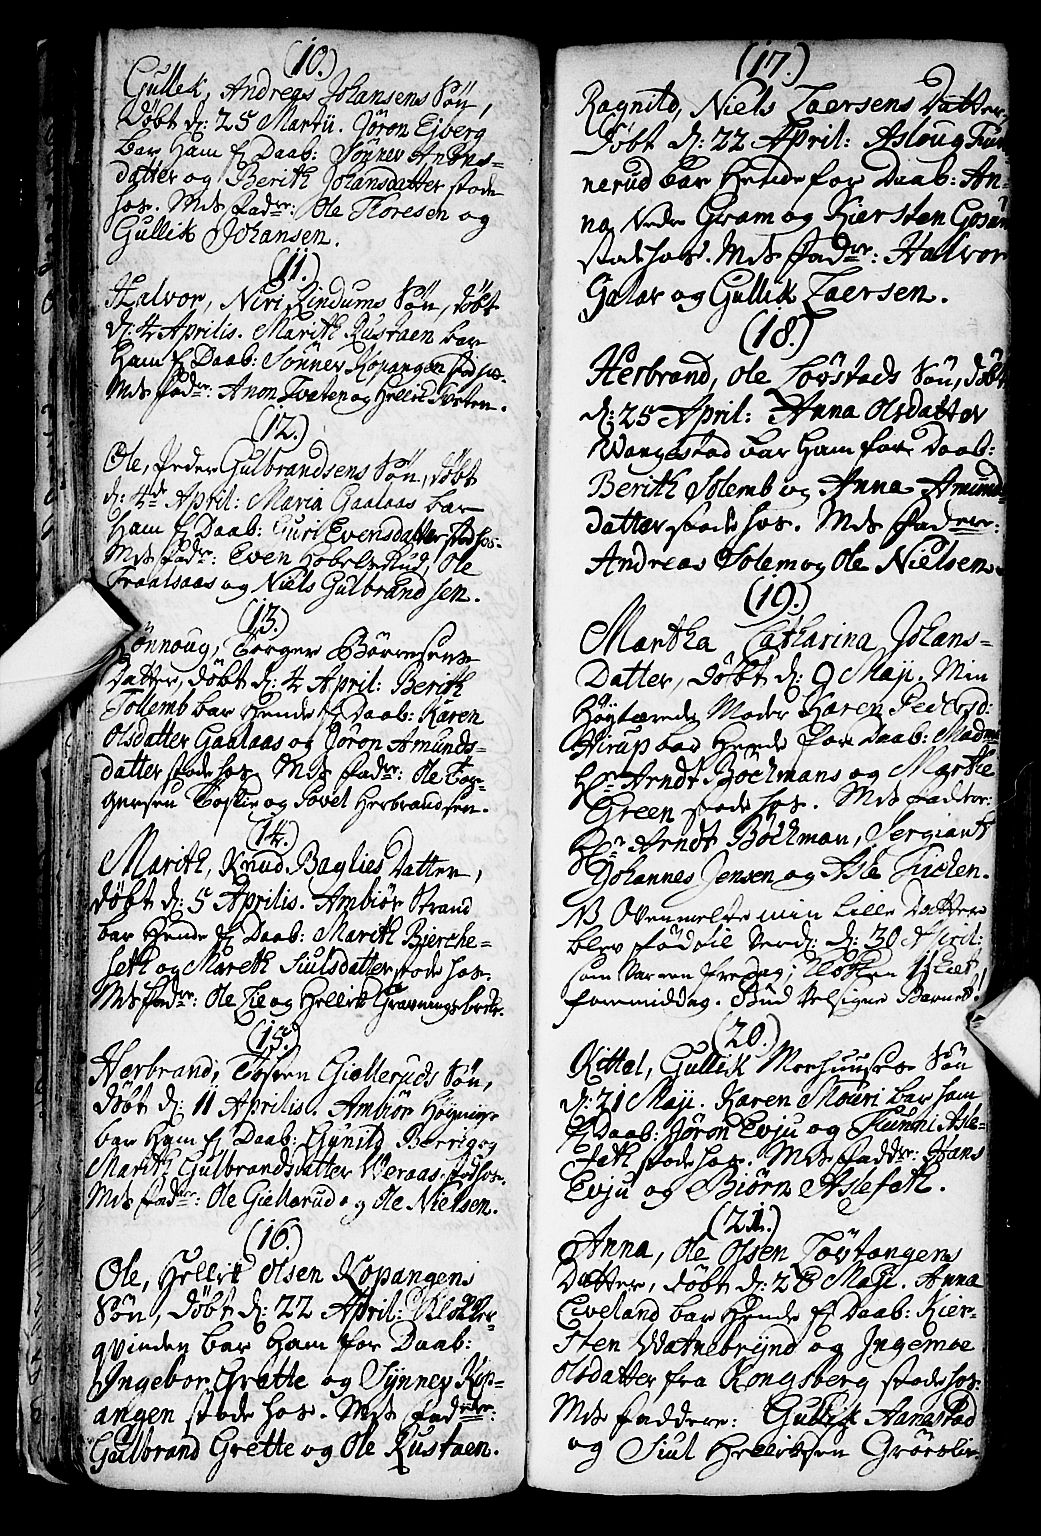 (10.)
Gullek, Andreas Johansens Søn,
Døbt d: 25 Martii. Jøron Ejberg
bar Ham f Daab: Sønnev Anons-
datter og Berith Johansdatter stode
hos. Mds fadr: Ole Floresen og
Gullik Johansen.
(11.)
Halvor, Niri Lindums Søn, døbt
d: 4 Aprilis. Marith Rustaen bar
Ham f Daab: Sønnev Kopangen stod hos.
Mds fadr: Anon Tvæten og Hellic Tveten.
(12.)
Ole, Peder Gulbrandsens Søn, døbt
d: 4de April: Maria Gaalaas bar
Ham f Daab: Guri Evensdatter stod hos.
Mds fadr: Even Hobelsrud, Ole
Traalsaas og Niels Gulbrandsen.
(13.)
Rønnoug, Torger Børresens
Datter, døbt d: 4 April: Berith
Tollemb bar Hende f Daab: Karen
Olsdatter Gaalaas og Jøron Amunds-
datter stode hos. Mds fadr: Ole Tor-
gersen Toskie og Povel Herbrandsen.
(14.)
Marith, Knud Baglies Datter,
døbt d: 5 Aprilis. Ambiør Strand
bar Hende f Daab: Marith Bierche-
seth og Mareth Siulsdatter stode hos.
Mds fadr: Ole Lie og Hellik Gravningsbrek.
(15.)
Herbrand, Tosten Gielleruds Søn,
døbt d: 11 Aprilis. Ambiør Høyning
bar Ham f Daab: Gunild Berrig og
Marith Gulbrandsdatter Weraas stod hos.
Mds fadr: Ole Giellerud og Ole Nielsen.
(16.)
Ole, Hellik Olsen Kopangens
Søn, døbt d: 22 April: Klokker-
qvinden bar Ham for Daab:
Ingebor Grette og Synnev Kop-
angen stode hos. Mds fadere:
Gulbrand Grette og Ole Rustaen.
(17.)
Ragnild, Niels Laersens Datter,
Døbt d: 22 April: Asloug Fun-
nerud bar Hende for Daab: An-
na Nedre Gram og Kiersten Gosam
stode hos. Mds fadr: Halvor
Galar og Gullik Laersen.
(18.)
Herbrand, Ole Løvstads Søn, døbt
d: 25 April: Anna Olsdatter
Wangestad bar Ham for Daab:
Berith Solemb og Anna Amunds-
datter stode hos. Mds fadere:
Andreas Solem og Ole Nielsen.
(19.)
Martha Catharina Johans-
Datter, døbt d: 9 Maji. Min
Høytærede Moder Karen Pedersd:
Wirup bar Hende for Daab: Madme
Hr Arndt Bøckmans og Marthe
Green stode hos. Mds fadrer:
Hr Arndt Bøckman, Sergiant
Johannes Jensen og Asle Kirchen.
NB Ovenmelte min lille Datter
blev fød til Verd: d: 30 April:
som var en fredag, Klokken 11slet,
formiddag. Gud velsigne Barnet!
(20.)
Kittel, Gullik Moehuuses Søn
d: 21 Maji. Karen Moen bar ham
f Daab: Jøron Evju og Gunni Asle-
fath stode hos. Mds fadder: Hans
Evju og Biørn Aslefath.
(21.)
Anna, Ole Olsen Løvtangens
Datter, døbt d: 28 Maji. Anna
Eveland bar Hende f Daab: Kier-
sten Watnebrynd og Ingeboe
Olsdatter fra Kongsberg stode hos.
Mds faddere: Gullik Aanestad
og Siul Hellichsen Grøslie.